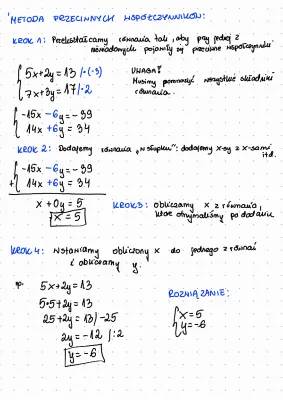 METODA PRZECIWNYCH WSPÓŁCZYNNIKÓW:
KROK 1: Przekształcamy równania tak, aby przy jednej z
niewiadomych pojawiły się przeciwne współczynniki
{5x+2y=13 /·(-3)
{7x+3y=17 /·2
UWAGA!
Musimy pomnożyć wszystkie składniki
równania.
{-15x-6y=-39
{14x+6y=34
KROK 2: Dodajemy równania „w słupku”: dodajemy x-sy z x-sami
itd.
{-15x-6y=-39
+{14x+6y=34
x+0y=5
x=5
KROK 3: Obliczamy x z równania,
które otrzymaliśmy po dodaniu
KROK 4: Wstawiamy obliczony x do jednego z równań
i obliczamy y.
np. 5x+2y=13
5·5+2y=13
25+2y=13 /-25
2y=-12 /:2
y=-6
ROZWIĄZANIE:
{x=5
{y=-6